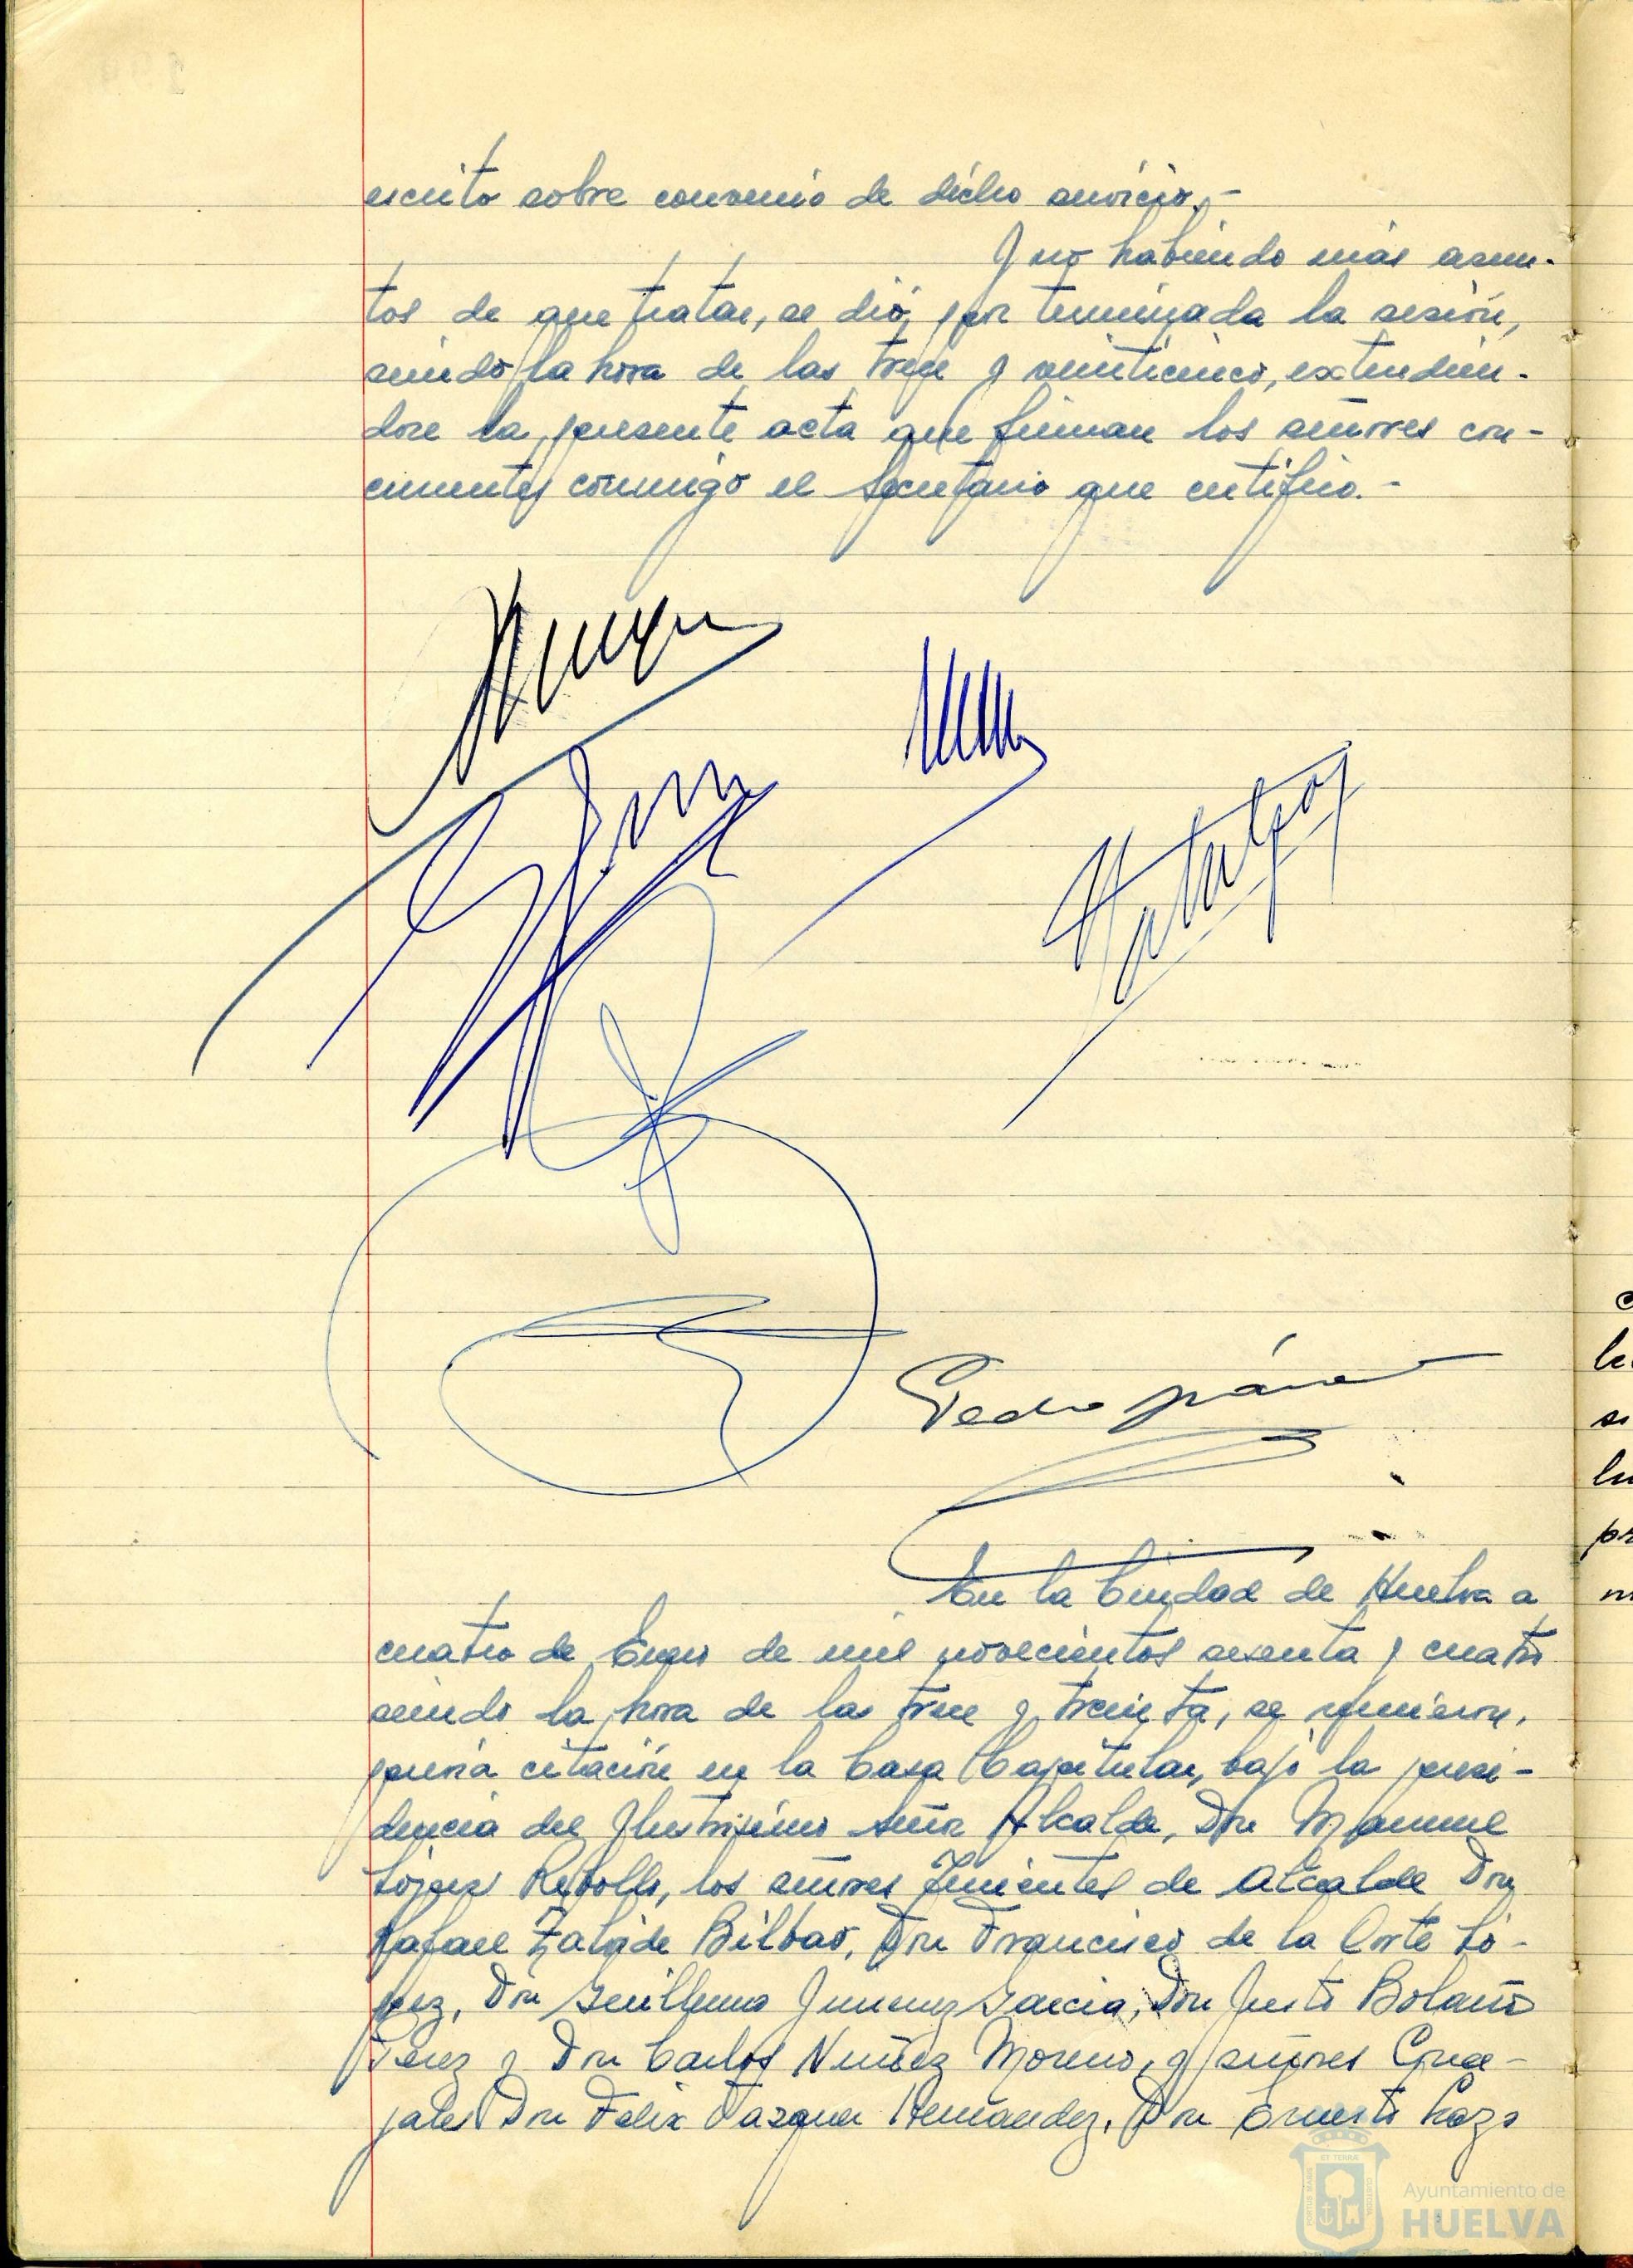 escrito sobre convenio de dicho servicio.-
Y no habiendo más asun-
tos de que tratar, se dió por terminada la sesión,
siendo la hora de las trece y veinticinco, extendién-
dose la presente acta que firman los señores con-
currentes conmigo el Secretario que certifico.-
Pedro
En la Ciudad de Huelva a
cuatro de Enero de mil novecientos sesenta y cuatro
siendo la hora de las trece y treinta, se reunieron,
previa citación en la Casa Capitular, bajo la presi-
dencia del Ilustrísimo Señor Alcalde, Don Manuel
López Rebollo, los señores Tenientes de Alcalde Don
Rafael Zalvide Bilbao, Don Francisco de la Corte Ló-
pez, Don Guillermo Jimenez Garcia, Don Justo Bolaño
Perez y Don Carlos Nuñez Moreno, y señores Conce-
jales Don Felix Vazquez Hernandez, Don Ernesto Lazo
Ayuntamiento de
HUELVA